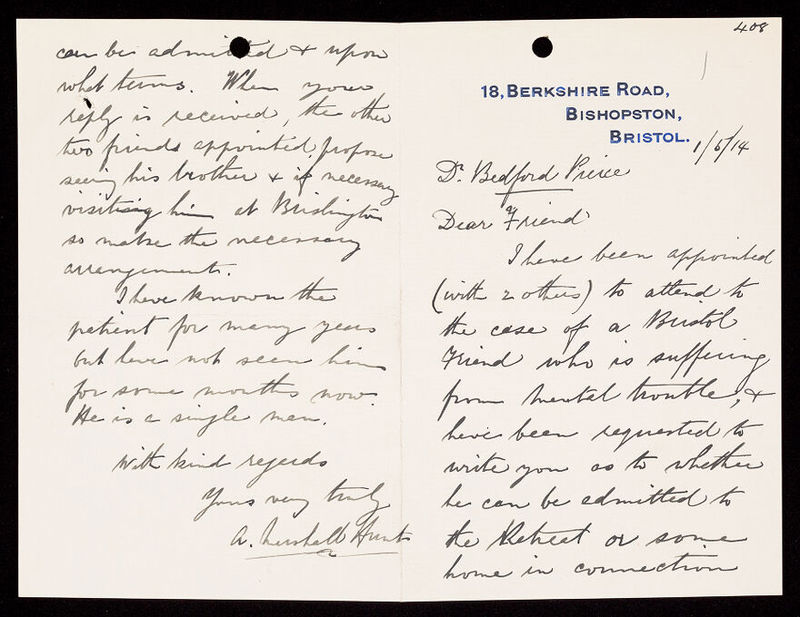 408
18, BERKSHIRE ROAD,
BISHOPSTON,
BRISTOL.
1/5/14
Dr. Bedford Pierce
Dear Friend
I have been appointed
(with 2 others) to attend to
the case of a Bristol
Friend who is suffering
from mental trouble, &
have been requested to
write you as to whether
he can be admitted to
the Retreat or some
home in connection
can be admitted & upon
what terms. When your
reply is received, the other
two friends appointed propose
seeing his brother & if necessary
visiting him at Brislington
so make the necessary
arrangements.
I have known the
patient for many years
but have not seen him
for some months now.
He is a single man.
With kind regards
Yours very truly
A. Marshall Hunt